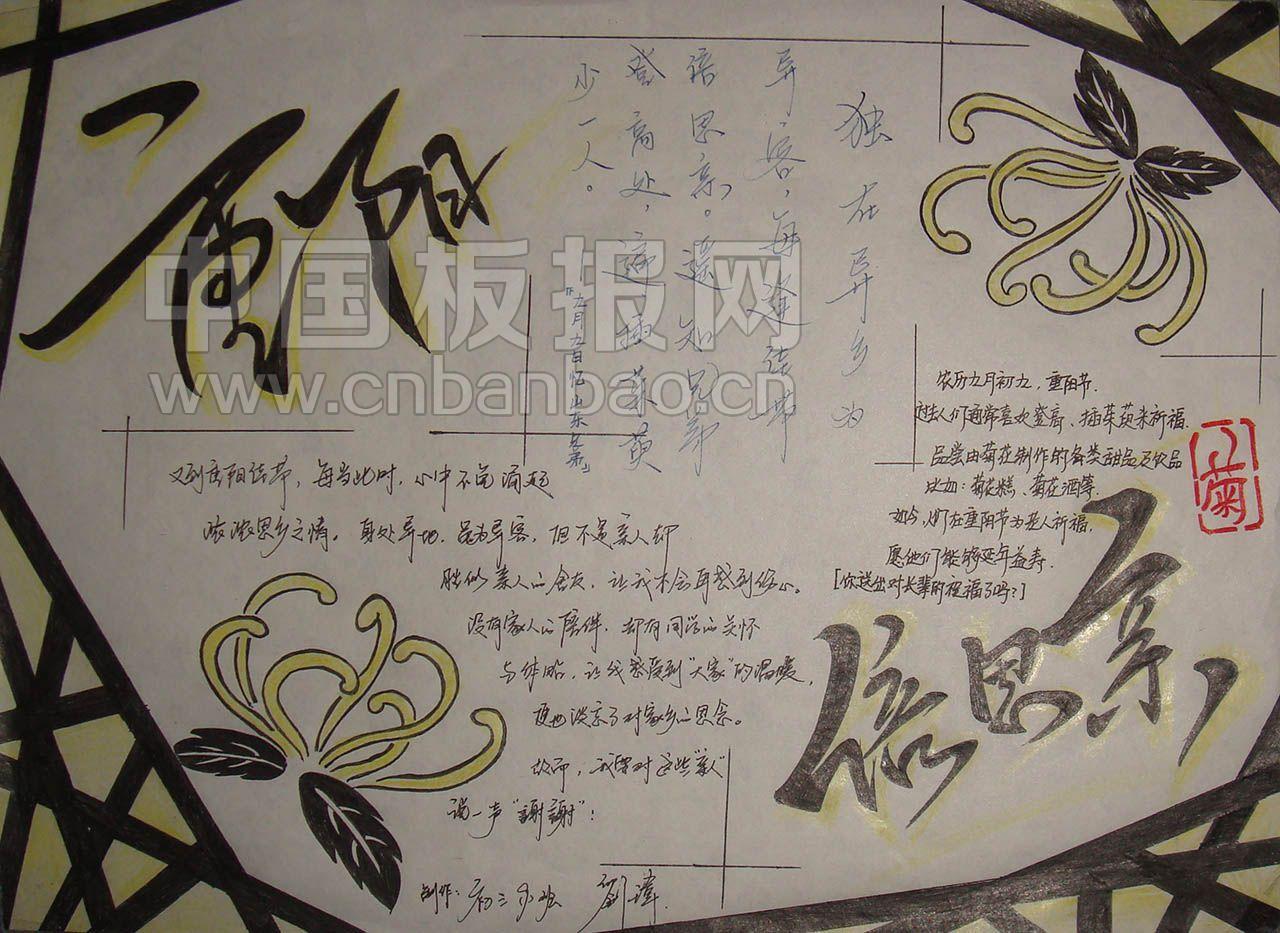 重阳
独在异乡为
异客，每逢佳节
倍思亲。遥知兄弟
登高处，遍插茱萸
少一人。
——『九月九日忆山东兄弟』
中国板报网
www.cnbanbao.cn
农历九月初九，重阳节.
过去人们通常喜欢登高、插茱萸来祈福.
品尝由菊花制作的各类甜品及饮品
比如：菊花糕、菊花酒等.
如今，人们在重阳节为老人祈福.
愿他们能够延年益寿.
[你送出对长辈的祝福了吗?]
菊
又到重阳佳节，每当此时，心中不免涌起
浓浓思乡之情。身处异地，虽为异客，但不是亲人却
胜似亲人的舍友，让我不会再感到伤心。
没有家人的陪伴，却有同学的关怀
与体贴，让我感受到"大家"的温暖，
便也淡忘了对家乡的思念。
故而，我要对这些"亲人"
说一声"謝謝"！
倍思亲
制作：初三 班 劉